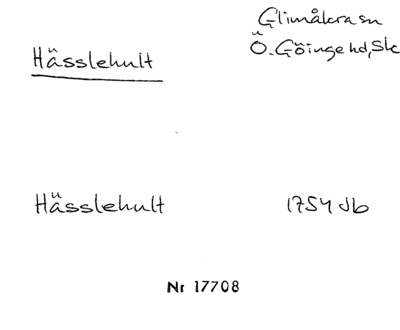 Glimåkra sn
Hässlehult
Ö. Göinge hd, Sk
Hässlehult
1754 Jb
Nr 17708